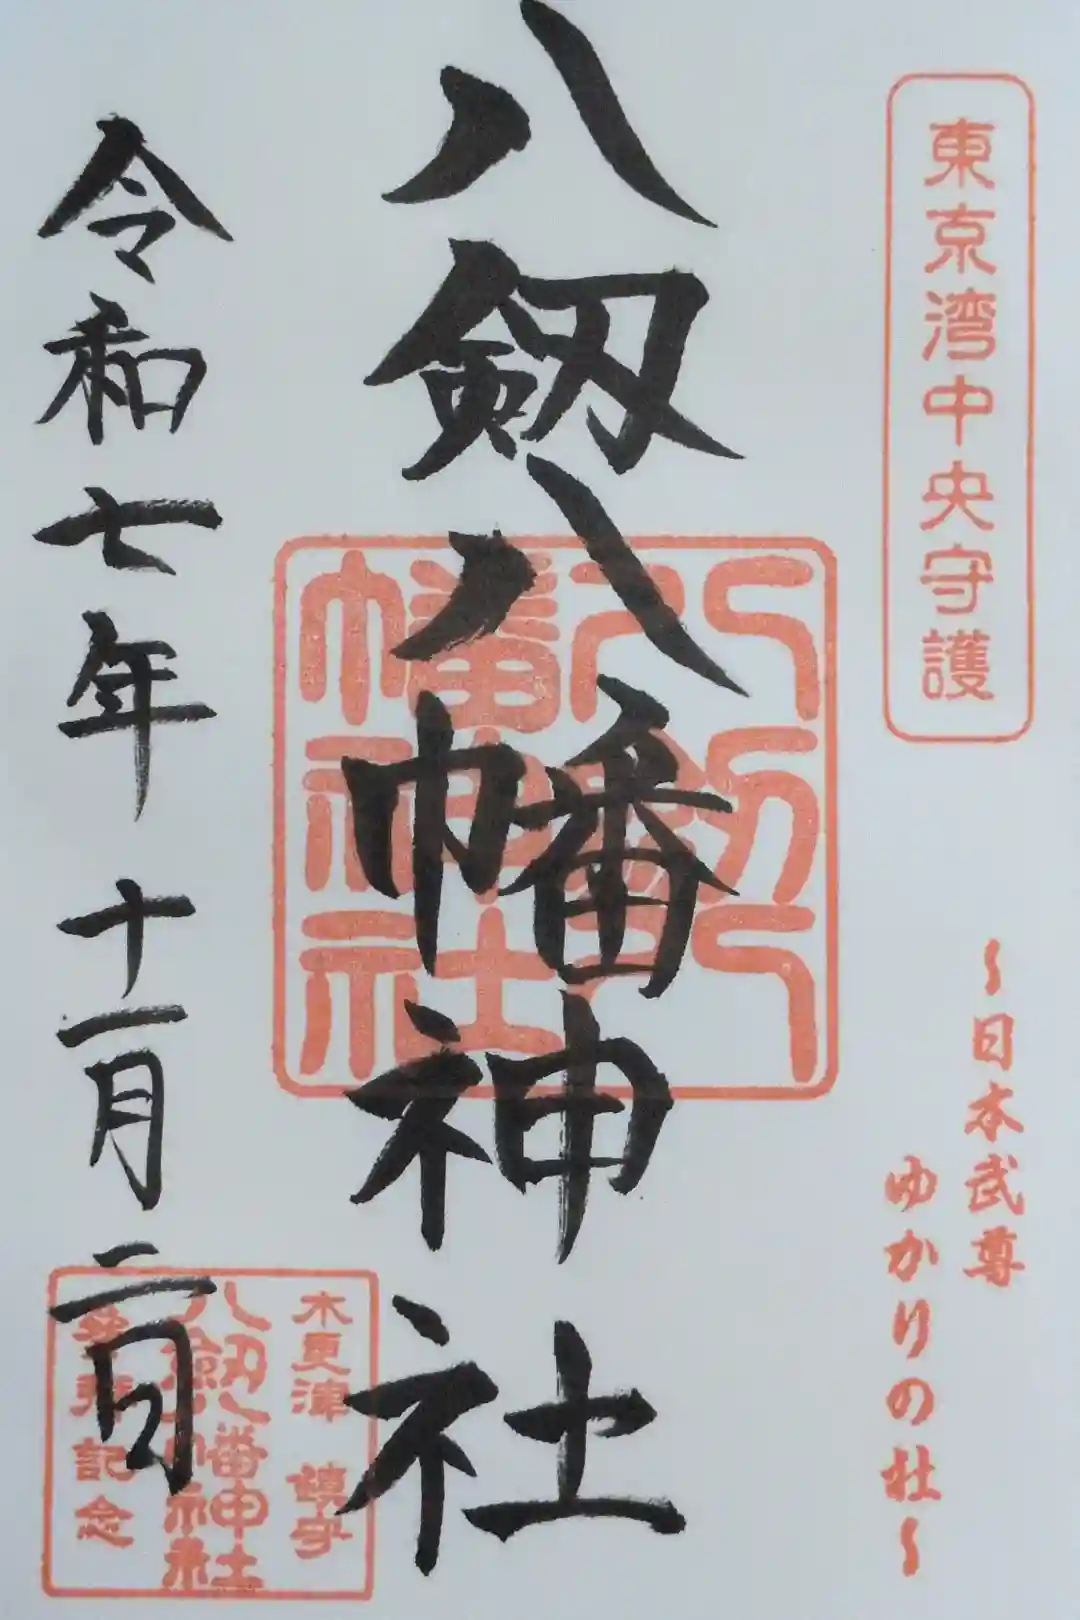 東京湾中央守護
～日本武尊
ゆかりの社～
八剱八幡神社
八剱八
幡神社
令和七年 十一月二日
木更津 鎮守
八剱八幡神社
参拝記念